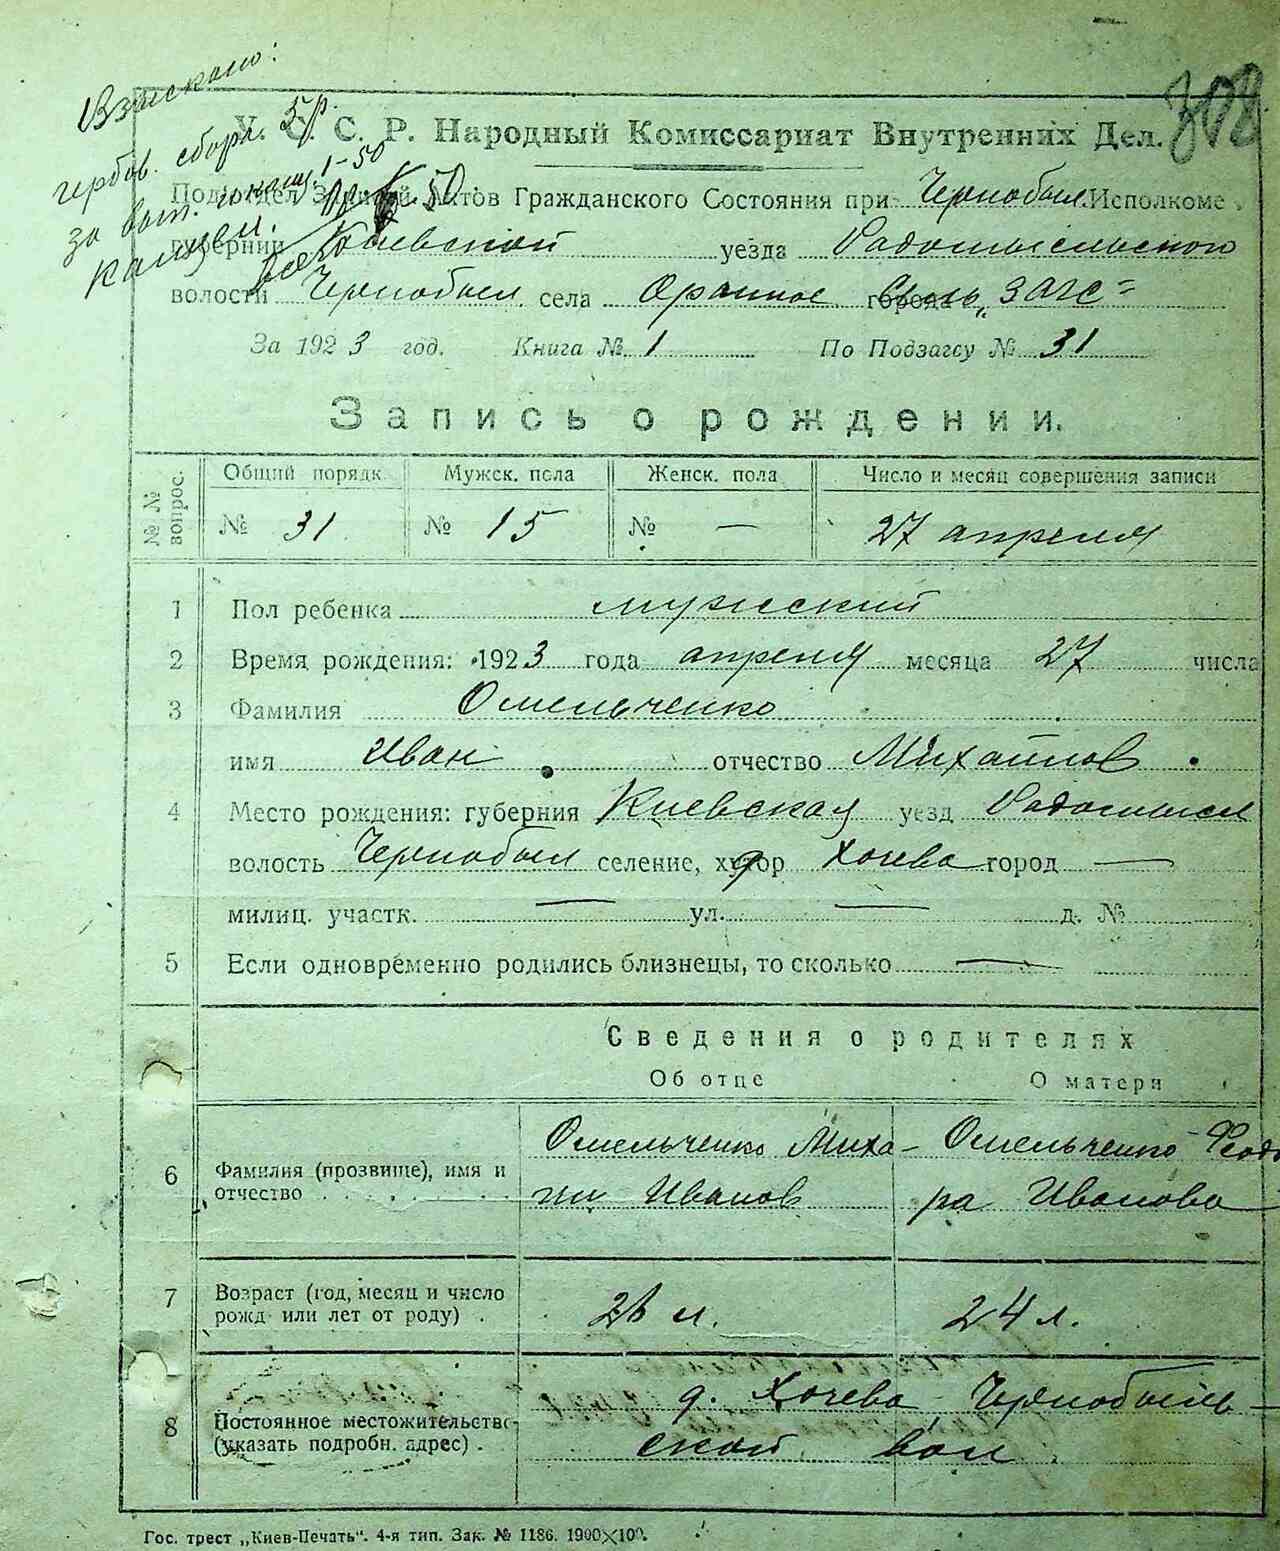 Взыскано:
гербов. сбора. 5 р.
за бот. и канц. 1-50
канцел.
308
У. С. С. Р. Народный Комиссариат Внутренних Дел.
Подотдел Записей Актов Гражданского Состояния при Чернобыл. Исполкоме.
губернии Киевской уезда Радомысльского
волости Чернобыл села Оранное города „ЗАГС"
За 1923 год. Книга № 1 По Подзагсу № 31
Запись о рождении.
№ № вопрос.
Общий порядк. Мужск. пола Женск. пола Число и месяц совершения записи
№ 31 № 15 № — 27 апреля
1 Пол ребенка мужеский
2 Время рождения: 1923 года апреля месяца 27 числа
3 Фамилия Омельченко
имя Иван отчество Михайлов
4 Место рождения: губерния Киевская уезд Радомысл
волость Чернобыл селение, хутор д Хочева город —
милиц. участк. — ул. — д. №
5 Если одновременно родились близнецы, то сколько —
Сведения о родителях
Об отце О матери
Омельченко Миха- Омельченко Феодо
6 Фамилия (прозвище), имя и
отчество
ил Иванов ра Иванова
7 Возраст (год, месяц и число
рожд. или лет от роду) .
26 л. 24 л.
д. Хочева Чернобыль-
8 Постоянное местожительство
(указать подробн. адрес) .
ской вол.
Гос. трест „Киев-Печать". 4-я тип. Зак. № 1186. 1900×100.